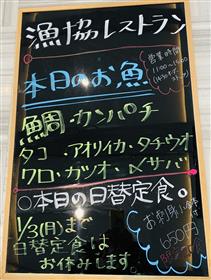 漁協レストラン
営業時間
11:00〜15:00
本日のお魚
鯛・カンパチ
タコ・アオリイカ・タチウオ
ワロ・カツオ・〆サバ
○本日の日替定食。
1/3(月)まで
日替定食は
お休みします
お刺身
650円